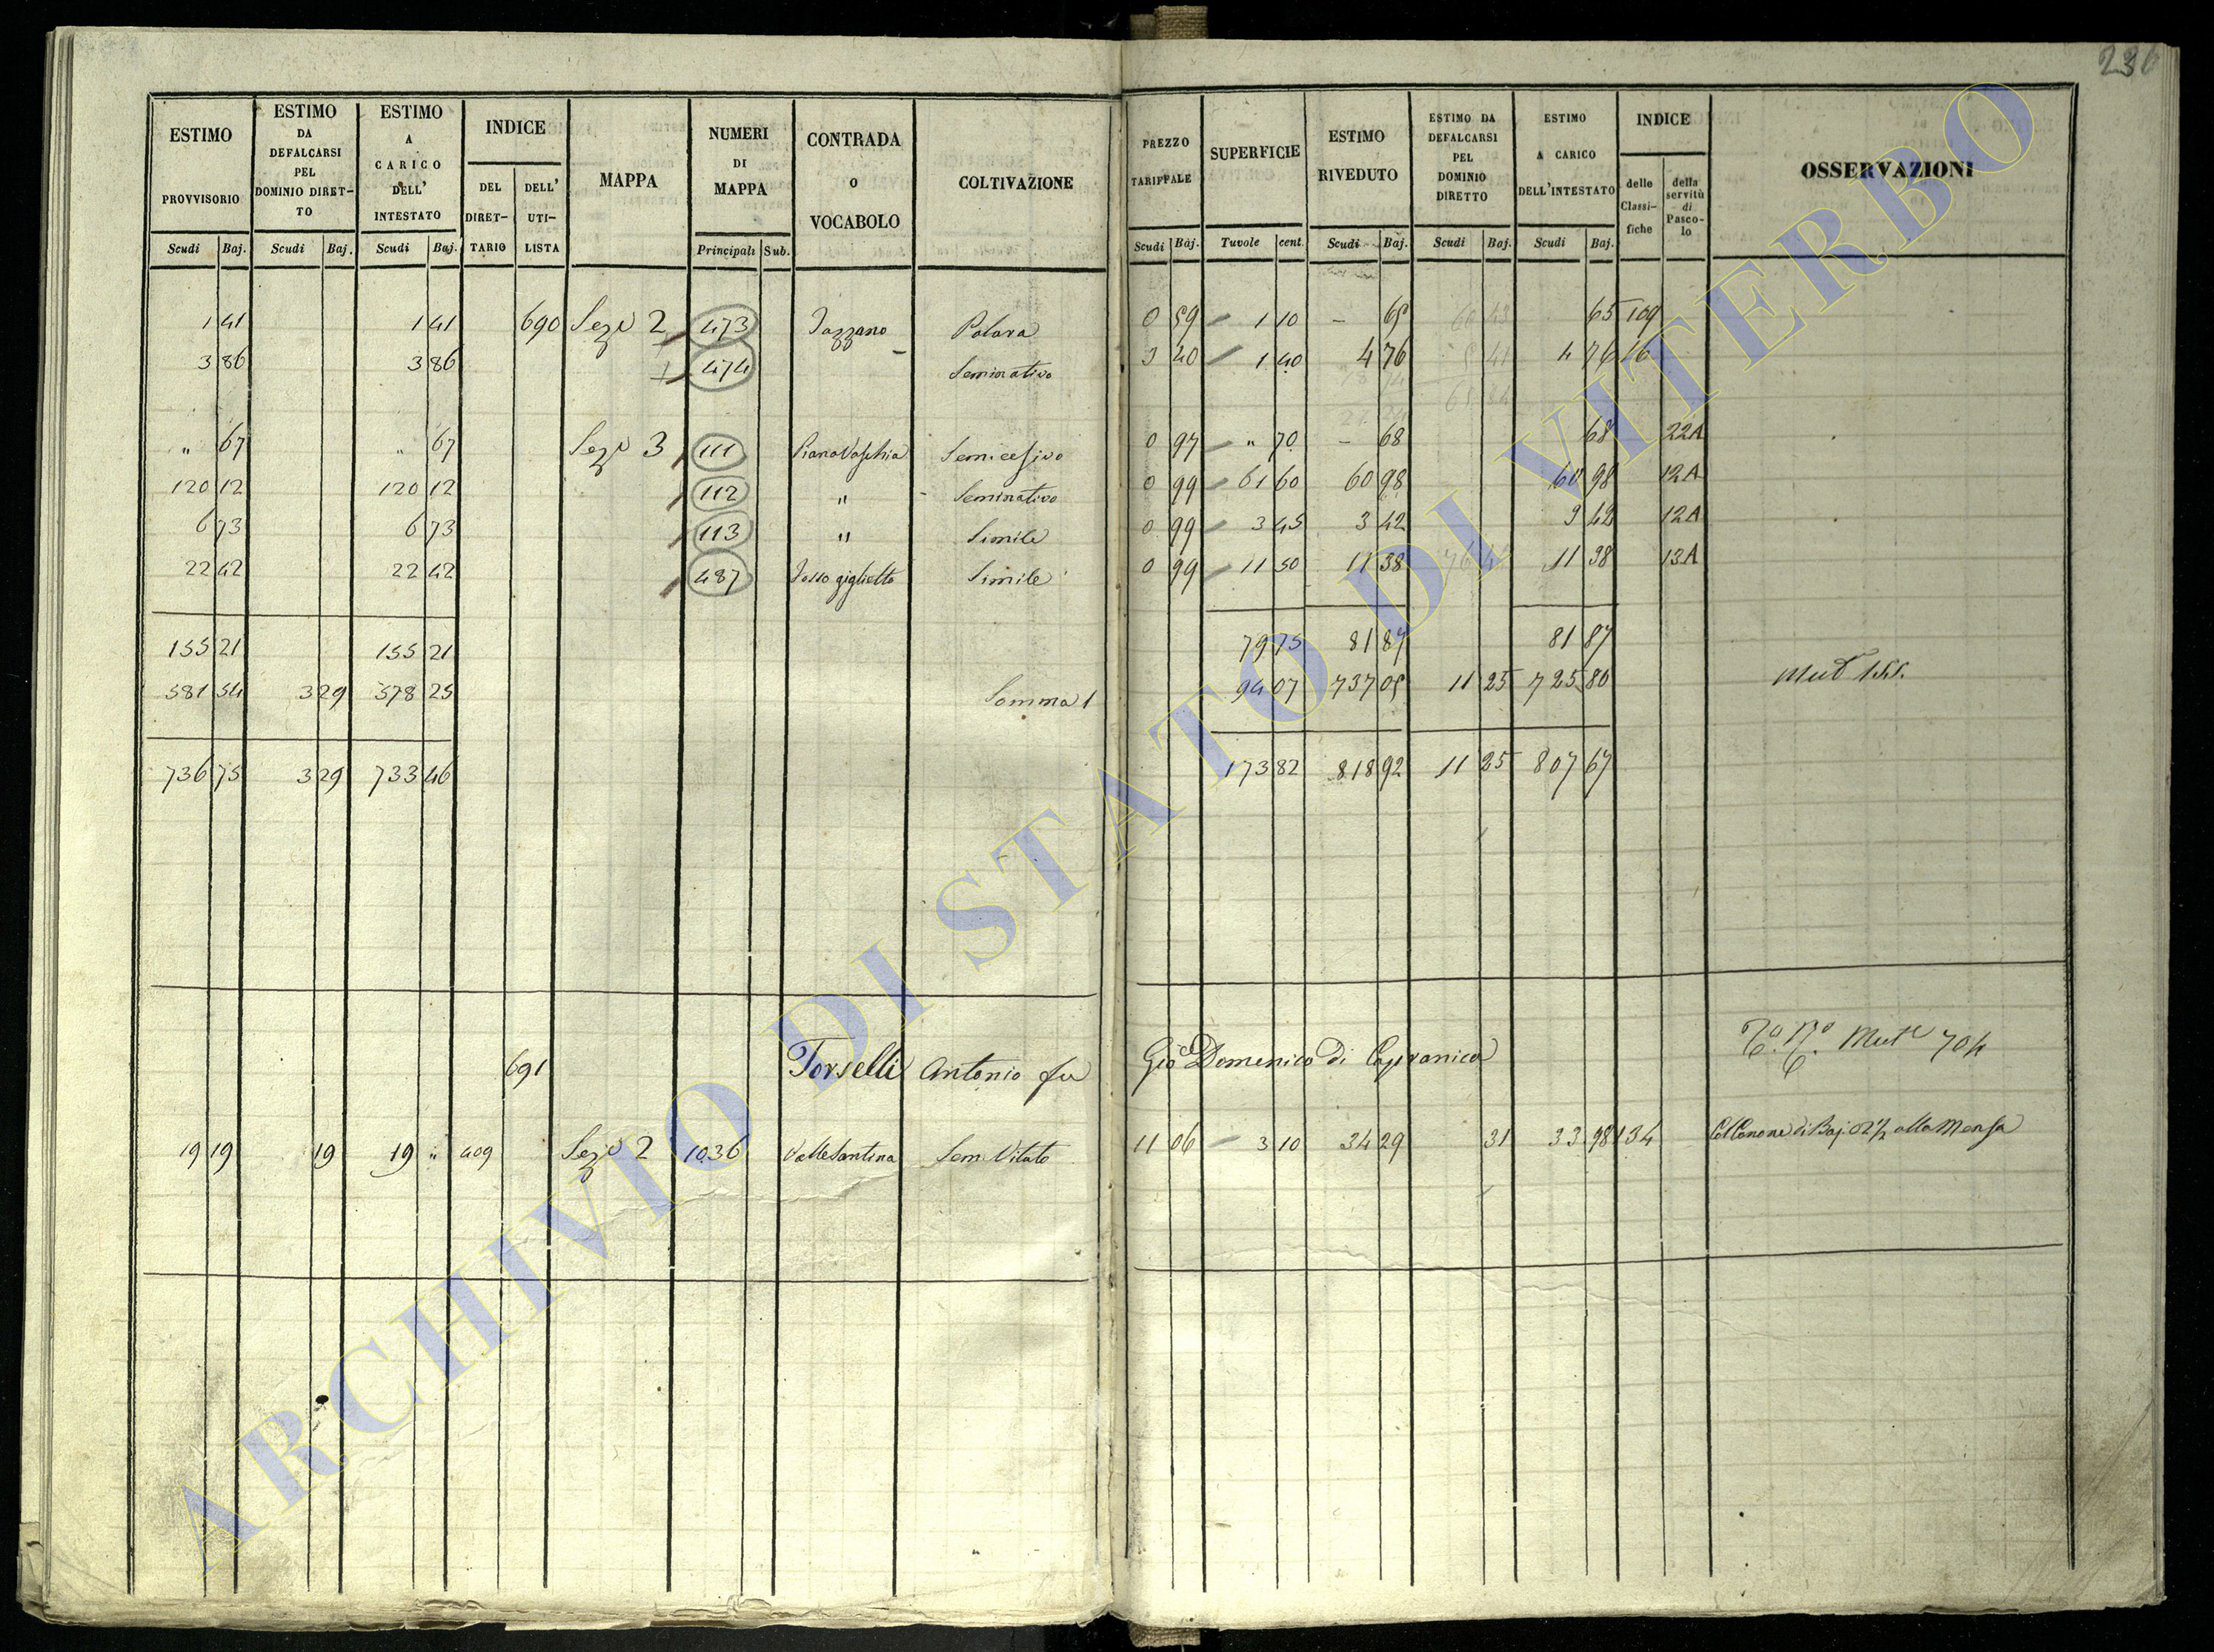 236
ESTIMO PROVVISORIO Scudi Baj. | ESTIMO DA DEFALCARSI PEL DOMINIO DIRETTO Scudi Baj. | ESTIMO A CARICO DELL' INTESTATO Scudi Baj. | INDICE DEL DIRETTARIO | DELL' UTILISTA | MAPPA | NUMERI DI MAPPA Principali Sub. | CONTRADA O VOCABOLO | COLTIVAZIONE | PREZZO TARIFFALE Scudi Baj. | SUPERFICIE Tavole cent. | ESTIMO RIVEDUTO Scudi Baj. | ESTIMO DA DEFALCARSI PEL DOMINIO DIRETTO Scudi Baj. | ESTIMO A CARICO DELL'INTESTATO Scudi Baj. | INDICE delle Classifiche | della servitù di Pascolo | OSSERVAZIONI
1 41 | 1 41 | 690 | Seze 2 | 473 | 0 59 | 1 10 | – 65 | 65 | 109
3 86 | 3 86 | 474 | Seminativo | 3 40 | 1 40 | 4 76 | 4 76 | 16
" 67 | " 67 | Seze 3 | 111 | 0 97 | " 70 | – 68 | 68 | 22A
120 12 | 120 12 | 112 | " | Seminativo | 0 99 | 61 60 | 60 98 | 60 98 | 12A
6 73 | 6 73 | 113 | " | Simile | 0 99 | 3 45 | 3 42 | 3 42 | 12A
22 42 | 22 42 | 487 | Fosso giglietto | Simile | 0 99 | 11 50 | 11 38 | 11 38 | 13A
155 21 | 155 21 | 79 75 | 81 87 | 81 87
581 54 | 3 29 | 578 25 | Somma | 94 07 | 737 05 | 11 25 | 725 80 | Mut 155.
736 75 | 3 29 | 733 46 | 173 82 | 818 92 | 11 25 | 807 67
691 | Torselli Antonio fu Gio Domenico di Capranica | Mut 704
19 19 | 19 | 19 " | 409 | Seze 2 | 1036 | Valle Santina | Sem Vitato | 11 06 | 3 10 | 34 29 | 31 | 33 98 | 134 | Col Canone di Baj. alla Mensa
ARCHIVIO DI STATO DI VITERBO